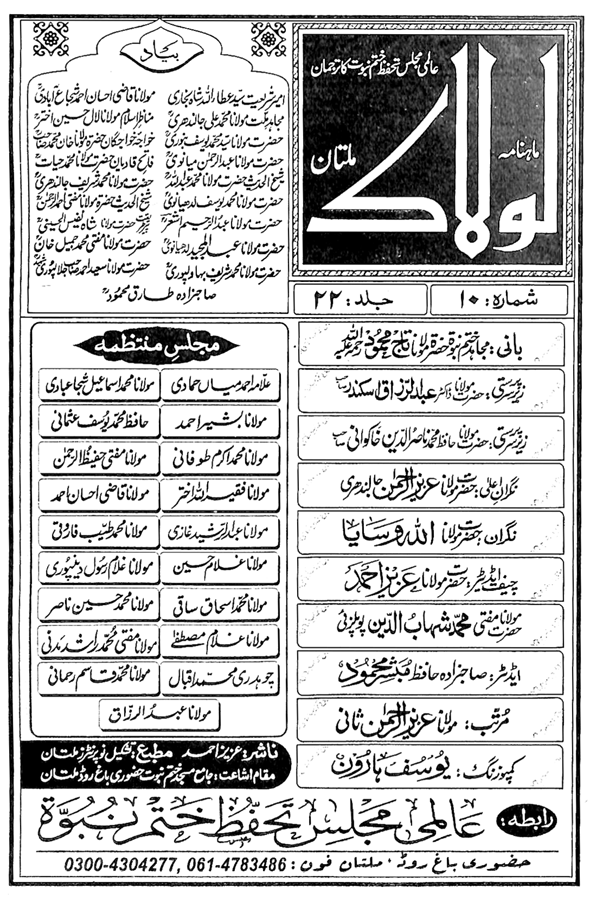 عالمی مجلس تحفظ ختم نبوت کا ترجمان
ماہنامہ
لولاک
ملتان
شمارہ: ۱۰
جلد: ۲۲
بیاد
امیر شریعت سید عطاء اللہ شاہ بخاریؒ
مولانا قاضی احسان احمد شجاع آبادیؒ
مجاہد ملت مولانا محمد علی جالندھریؒ
مناظر اسلام مولانا لال حسین اخترؒ
حضرت مولانا سید محمد یوسف بنوریؒ
خواجہ خواجگان حضرت مولانا خان محمد صاحبؒ
حضرت مولانا عبدالرحمٰن میانویؒ
فاتح قادیان حضرت مولانا محمد حیاتؒ
شیخ الحدیث حضرت مولانا محمد عبداللہؒ
حضرت مولانا محمد شریف جالندھریؒ
حضرت مولانا محمد یوسف لدھیانویؒ
شیخ الحدیث حضرت مولانا مفتی احمد الرحمٰنؒ
حضرت مولانا عبدالرحیم اشعرؒ
حضرت مولانا شاہ نفیس الحسینیؒ
حضرت مولانا عبدالمجید لدھیانویؒ
حضرت مولانا مفتی محمد جمیل خانؒ
حضرت مولانا محمد شریف بہاولپوریؒ
حضرت مولانا سعید احمد صاحب جلالپوریؒ
صاحبزادہ طارق محمودؒ
بانی: مجاہد ختم نبوۃ حضرۃ مولانا تاج محمود رحمۃ اللہ علیہ
زیر سرپرستی: حضرت مولانا ڈاکٹر عبدالرزاق اسکندر صاحب
زیر سرپرستی: حضرت مولانا حافظ محمد ناصر الدین خاکوانی صاحب
نگران اعلیٰ: حضرت مولانا عزیز الرحمٰن جالندھری
نگران: حضرت مولانا اللہ وسایا
چیف ایڈیٹر: حضرت مولانا عزیز احمد
حضرت مولانا مفتی محمد شہاب الدین پوپلزئی
ایڈیٹر: صاحبزادہ حافظ مبشر محمود
مرتب: مولانا عزیز الرحمٰن ثانی
کمپوزنگ: یوسف ہارون
مجلس منتظمہ
علامہ احمد میاں حمادی
مولانا محمد اسماعیل شجاعبادی
مولانا بشیر احمد
حافظ محمد یوسف عثمانی
مولانا محمد اکرم طوفانی
مولانا مفتی حفیظ الرحمٰن
مولانا فقیہ اللہ اختر
مولانا قاضی احسان احمد
مولانا عبدالرشید غازی
مولانا محمد طیب فاروقی
مولانا غلام حسین
مولانا غلام رسول دینپوری
مولانا محمد اسحاق ساقی
مولانا محمد حسین ناصر
مولانا غلام مصطفیٰ
مولانا مفتی محمد راشد مدنی
چوہدری محمد اقبال
مولانا محمد قاسم رحمانی
مولانا عبدالرزاق
ناشر: عزیز احمد مطبع: تشکیل نو پرنٹرز ملتان
مقام اشاعت: جامع مسجد ختم نبوت حضوری باغ روڈ ملتان
رابطہ: عالمی مجلس تحفظ ختم نبوۃ
حضوری باغ روڈ، ملتان فون: 061-4783486, 0300-4304277